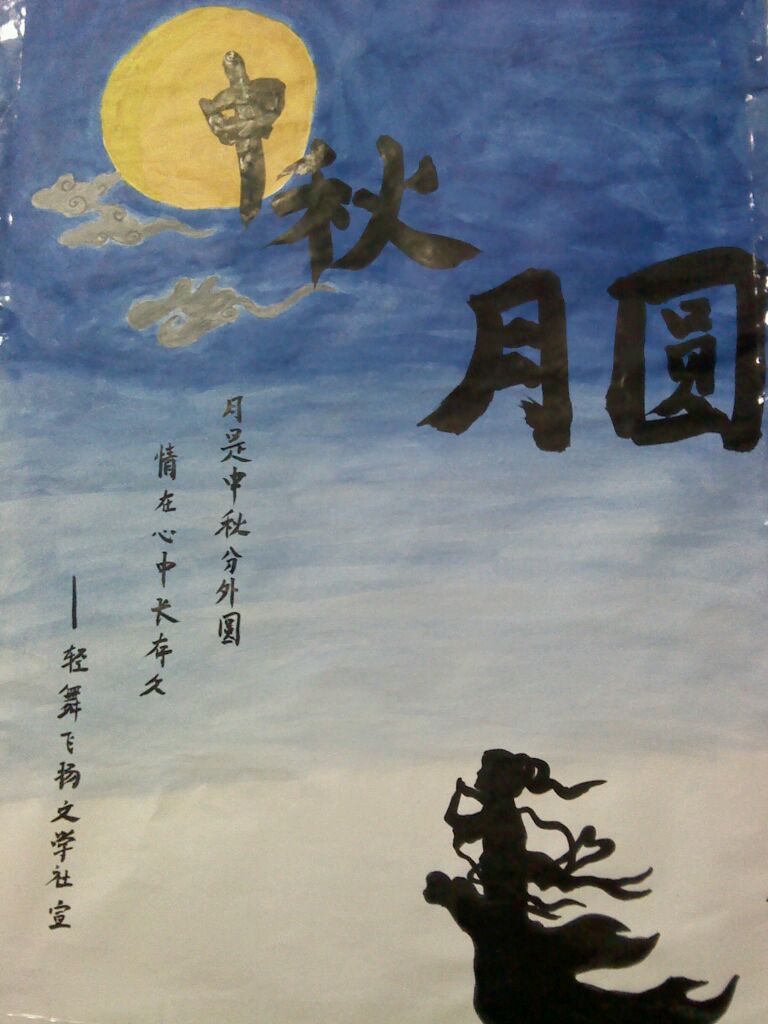 中秋月圆
月是中秋分外圆
情在心中长存久
——轻舞飞扬文学社宣